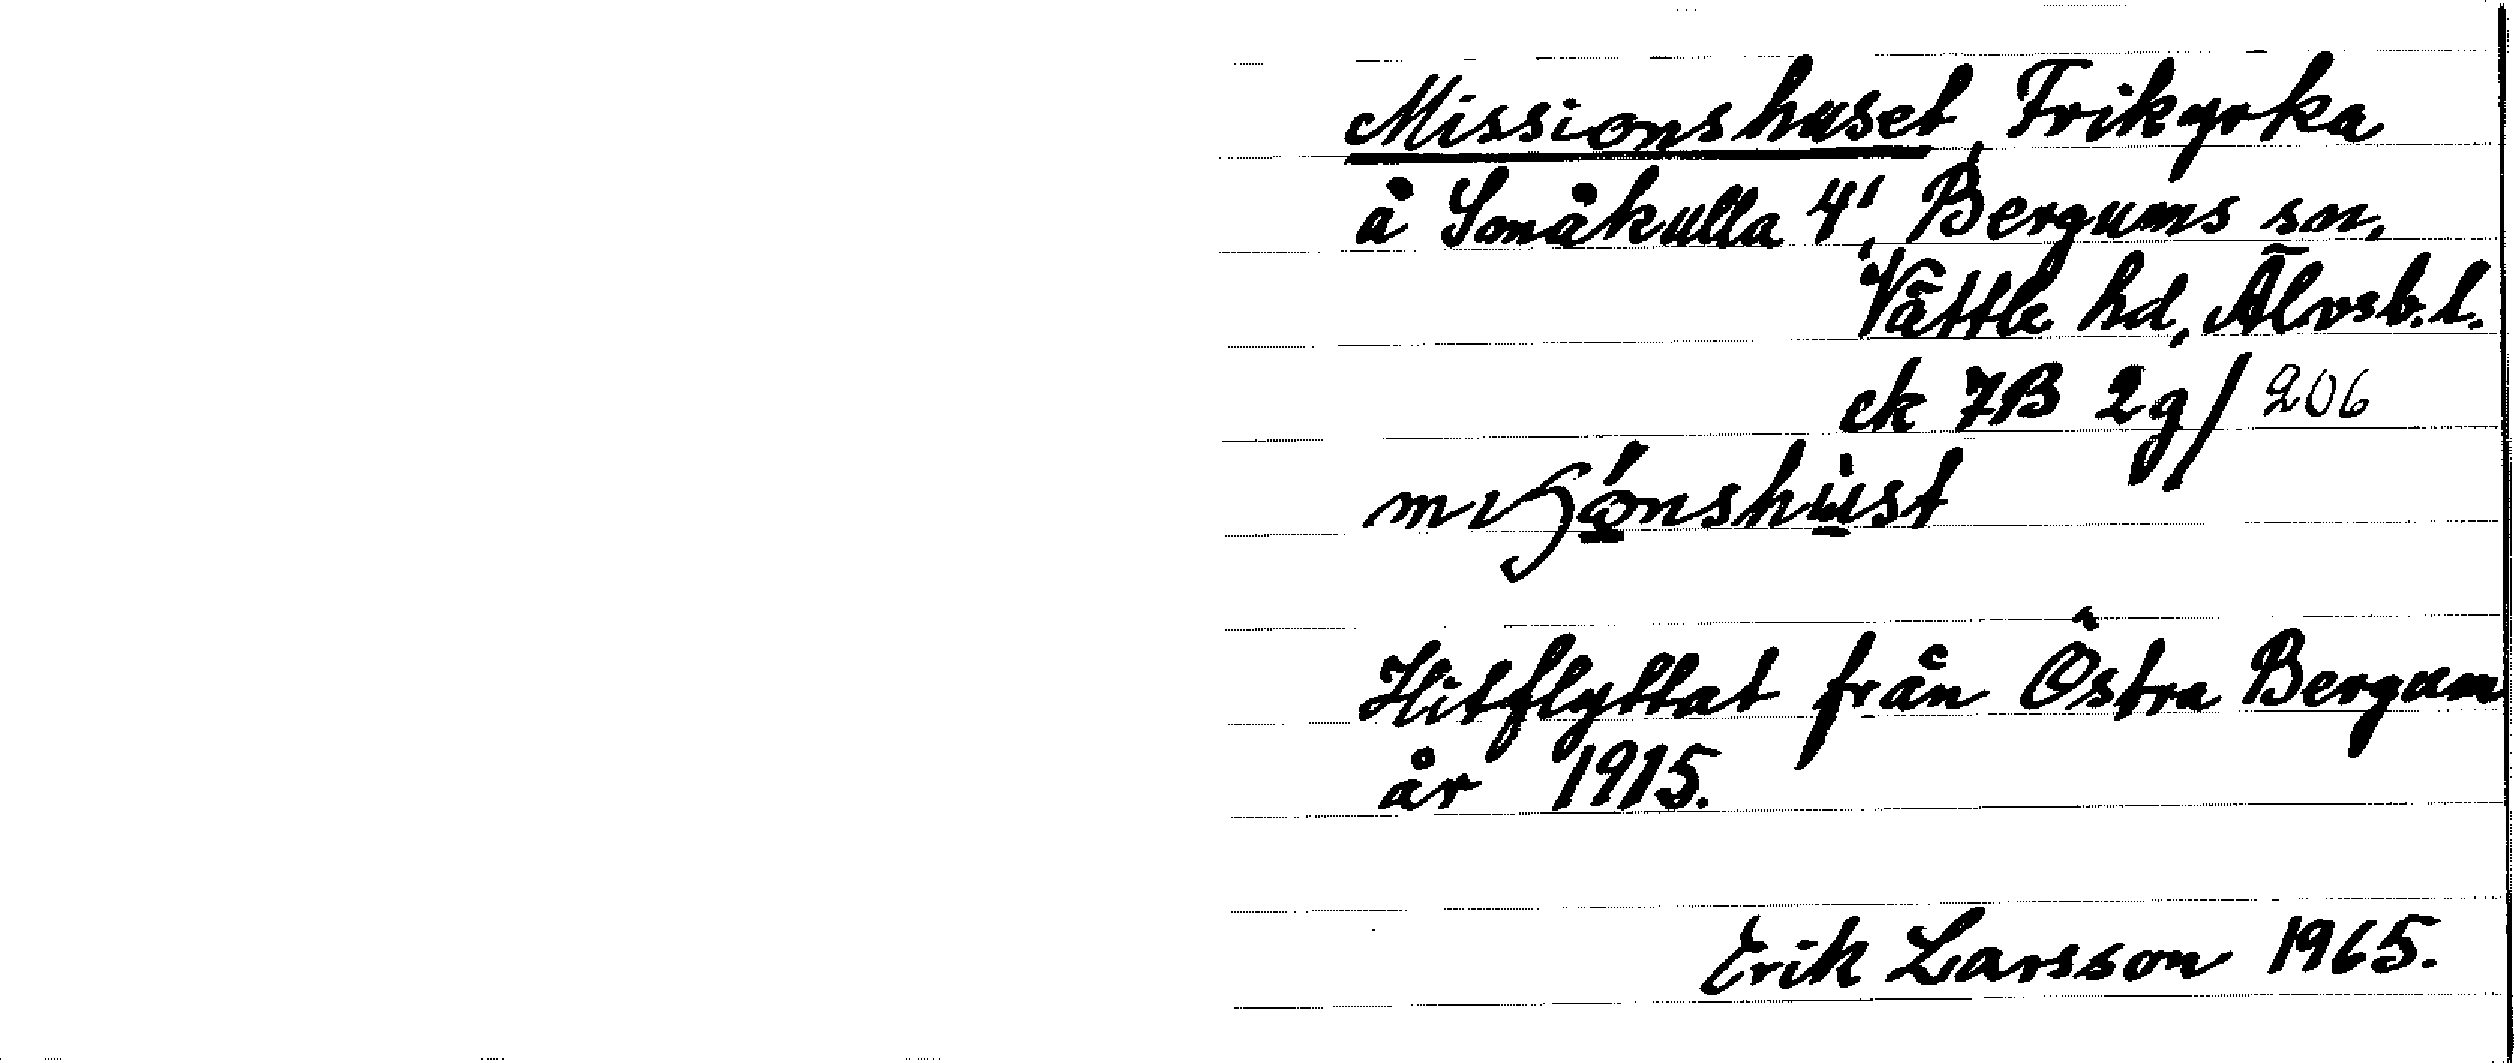 Missionshuset, Frikyrka
å Småkulla 4¹, Bergums sn,
Vättle hd, Älvsb. l.
ek 7B 2g/206
Hitflyttat från Östra Bergum
år 1915.
Erik Larsson 1965.